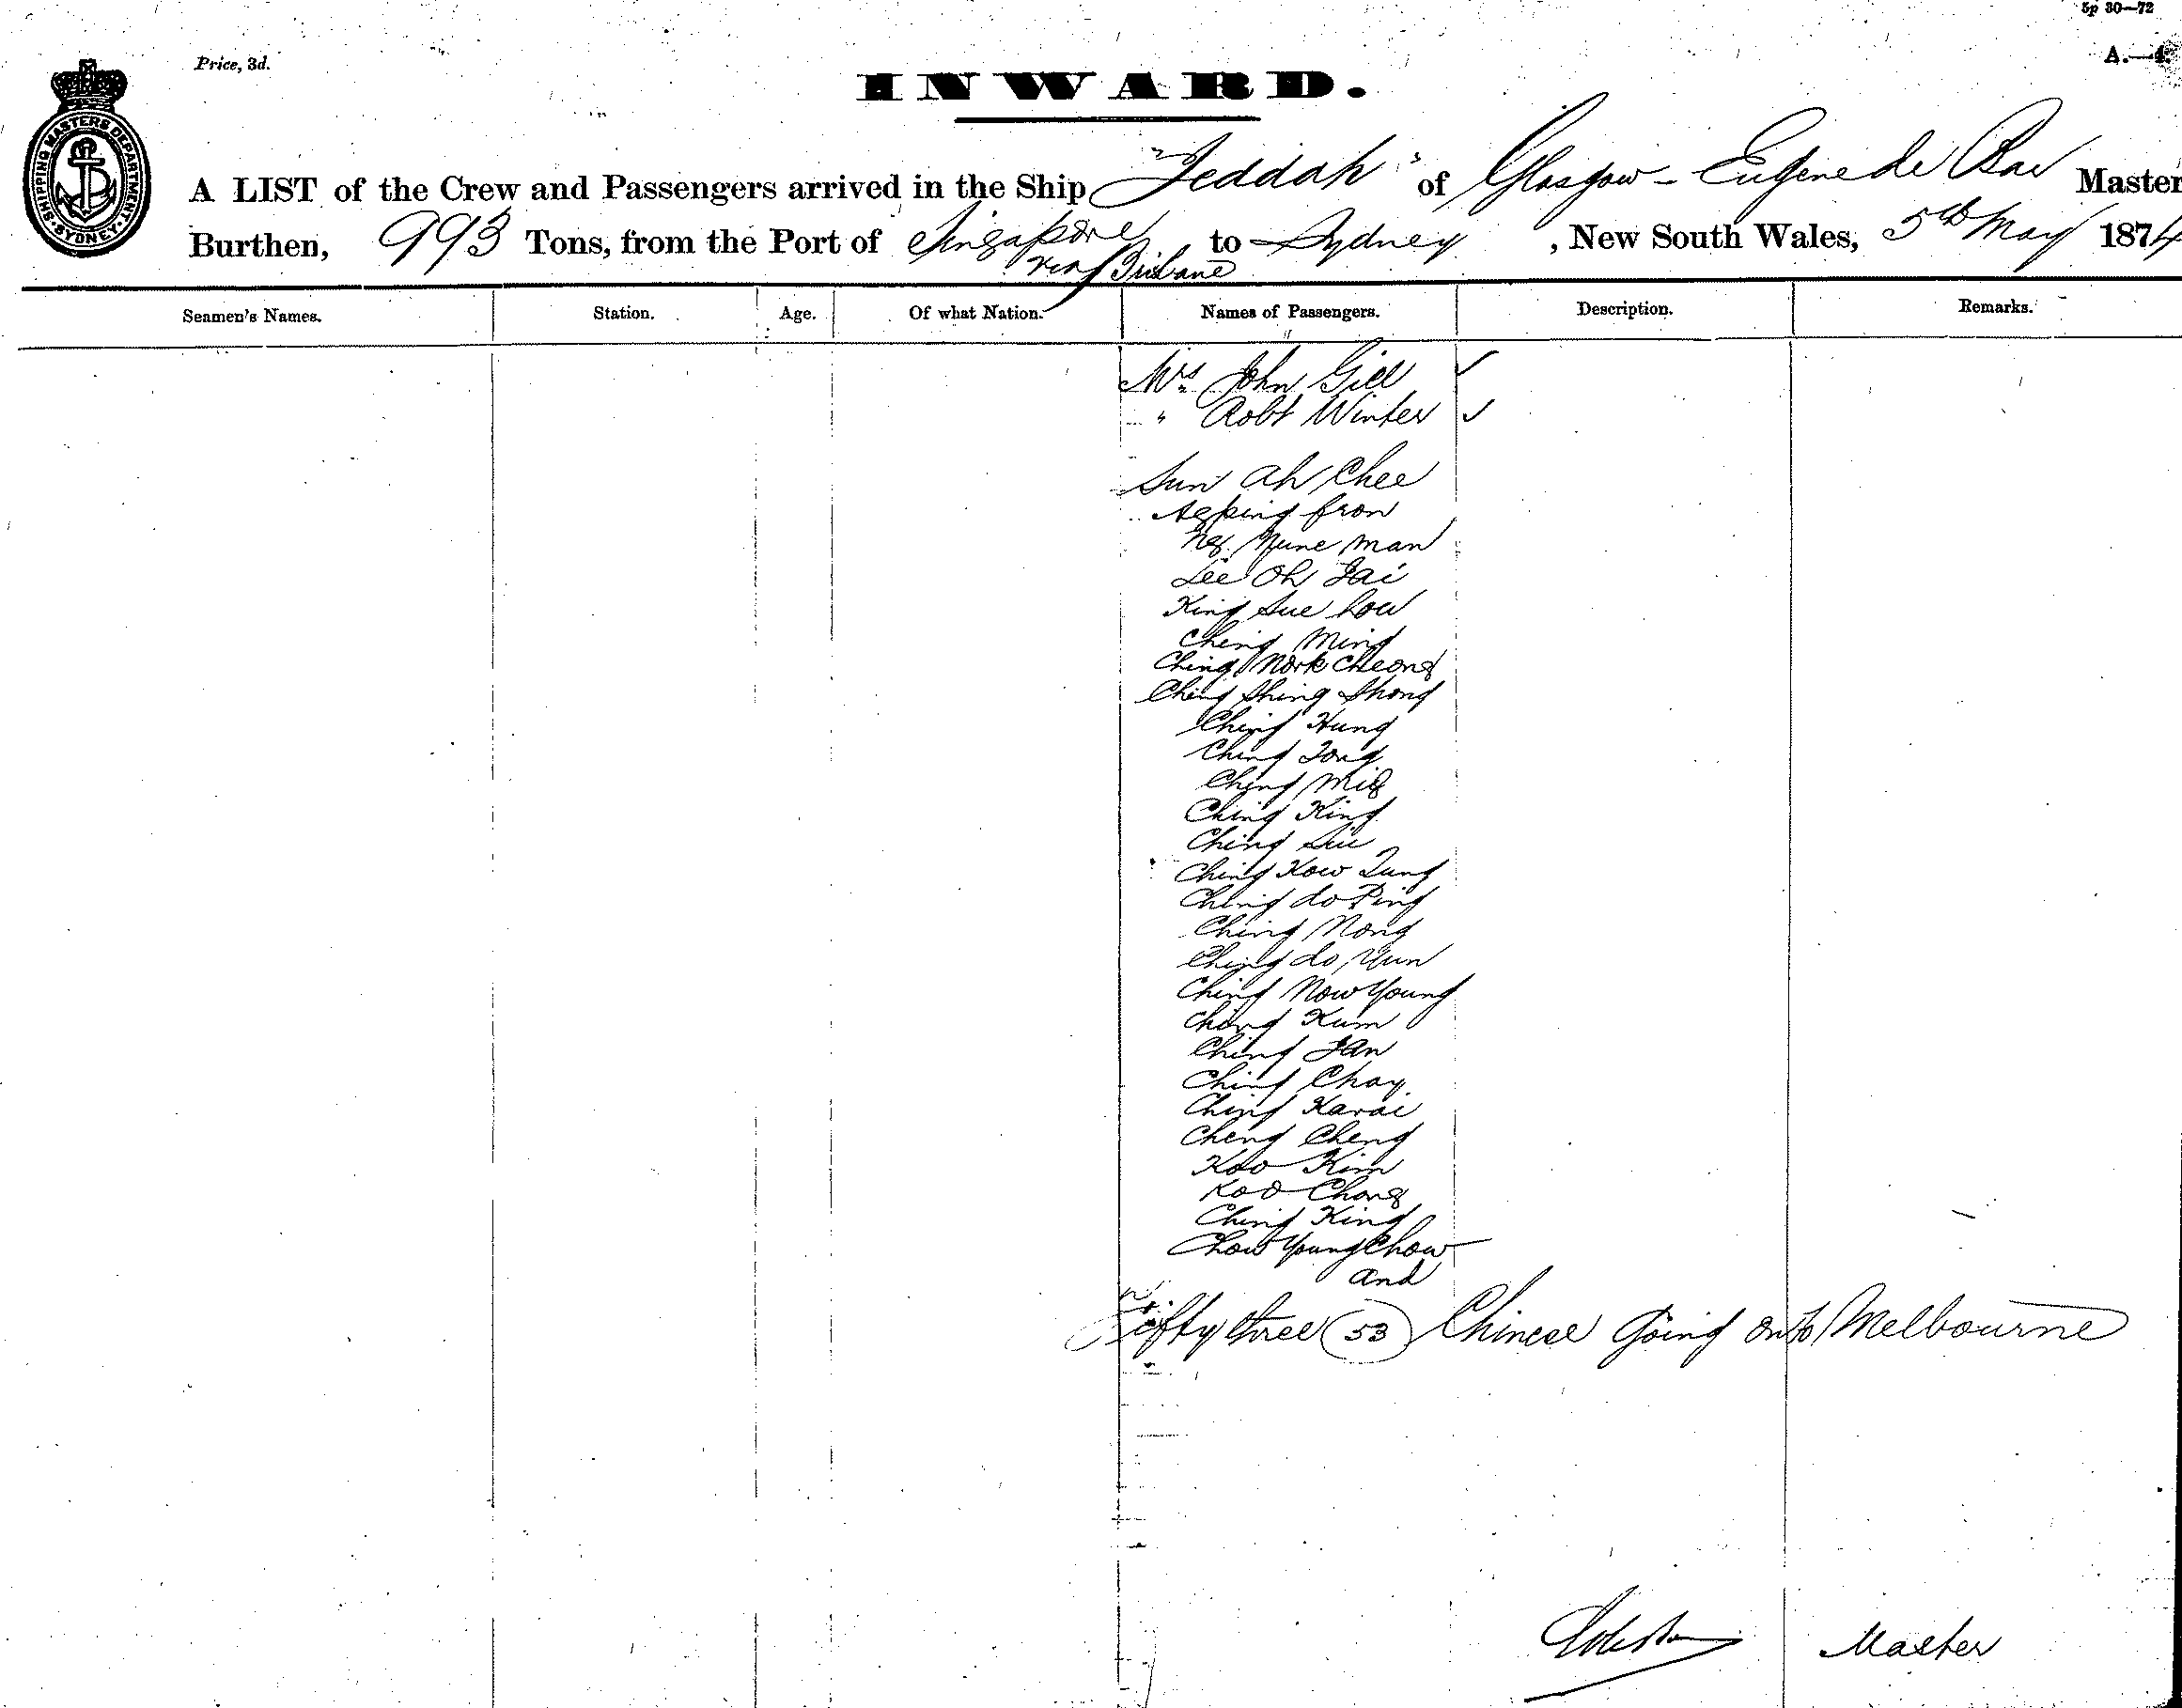 5p 30—72
Price, 3d.
A.—4.
INWARD.
SHIPPING MASTERS DEPARTMENT SYDNEY
A LIST of the Crew and Passengers arrived in the Ship "Jeddah" of Glasgow - Eugene de Master
Burthen, 993 Tons, from the Port of Singapore to Sydney, New South Wales, 5th May 1874
via Brisbane
Seamen's Names. Station. Age. Of what Nation. Names of Passengers. Description. Remarks.
Mrs John Gill
" Robt Winter
Sun Ah Chee
Man
Lee Oh
King Sue Low
Ching Ming
Ching Mork Cheong
Ching Shing Shong
Ching Hung
Ching Tong
Ching
Ching King
Ching
Ching Kow
Ching do Ping
Ching Nong
Ching do Yun
Ching Now Young
Ching Kum
Ching
Ching Chay
Ching Karai
Cheng Cheng
Koo Kim
Koo Chong
Ching King
Chow Young Chow
and
Fifty three (53) Chinese Going on to Melbourne
Master